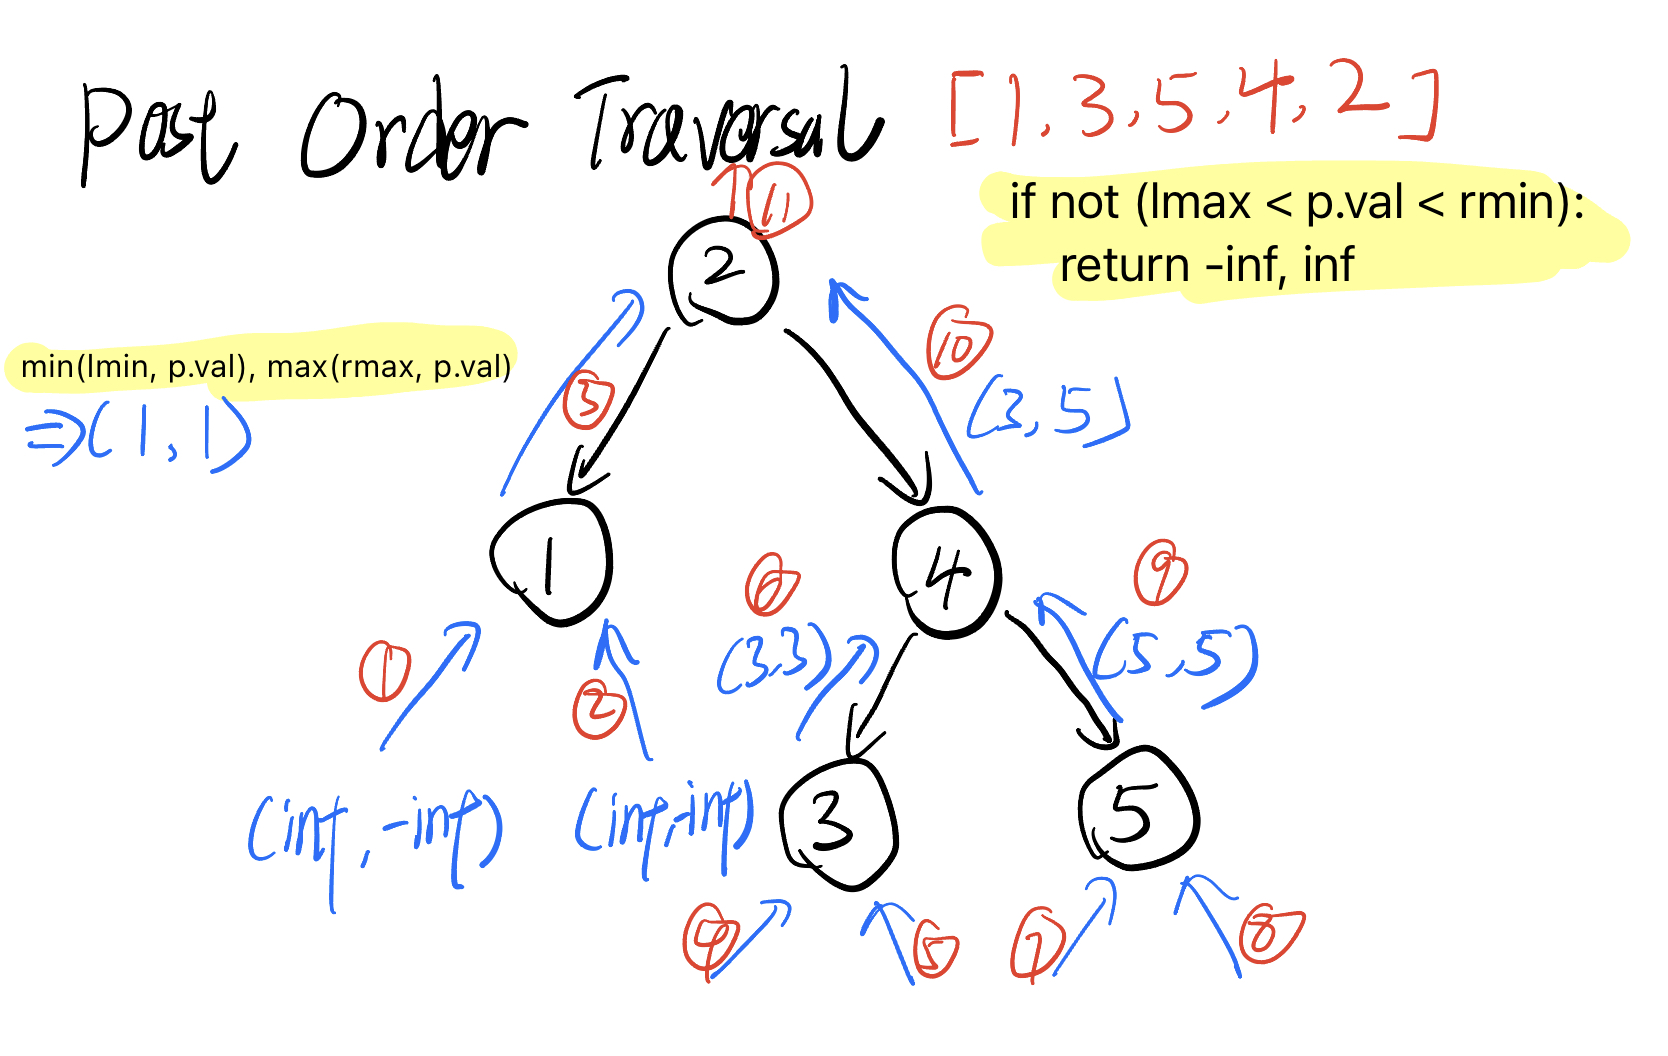 Post Order Traversal [1,3,5,4,2]
if not (lmax < p.val < rmin):
return -inf, inf
11
2
min(lmin, p.val), max(rmax, p.val)
⇒(1,1)
3
10
(3,5)
1
4
6
(3,3)
9
(5,5)
1
2
(inf,-inf)
(inf,-inf)
3
5
4
5
7
8